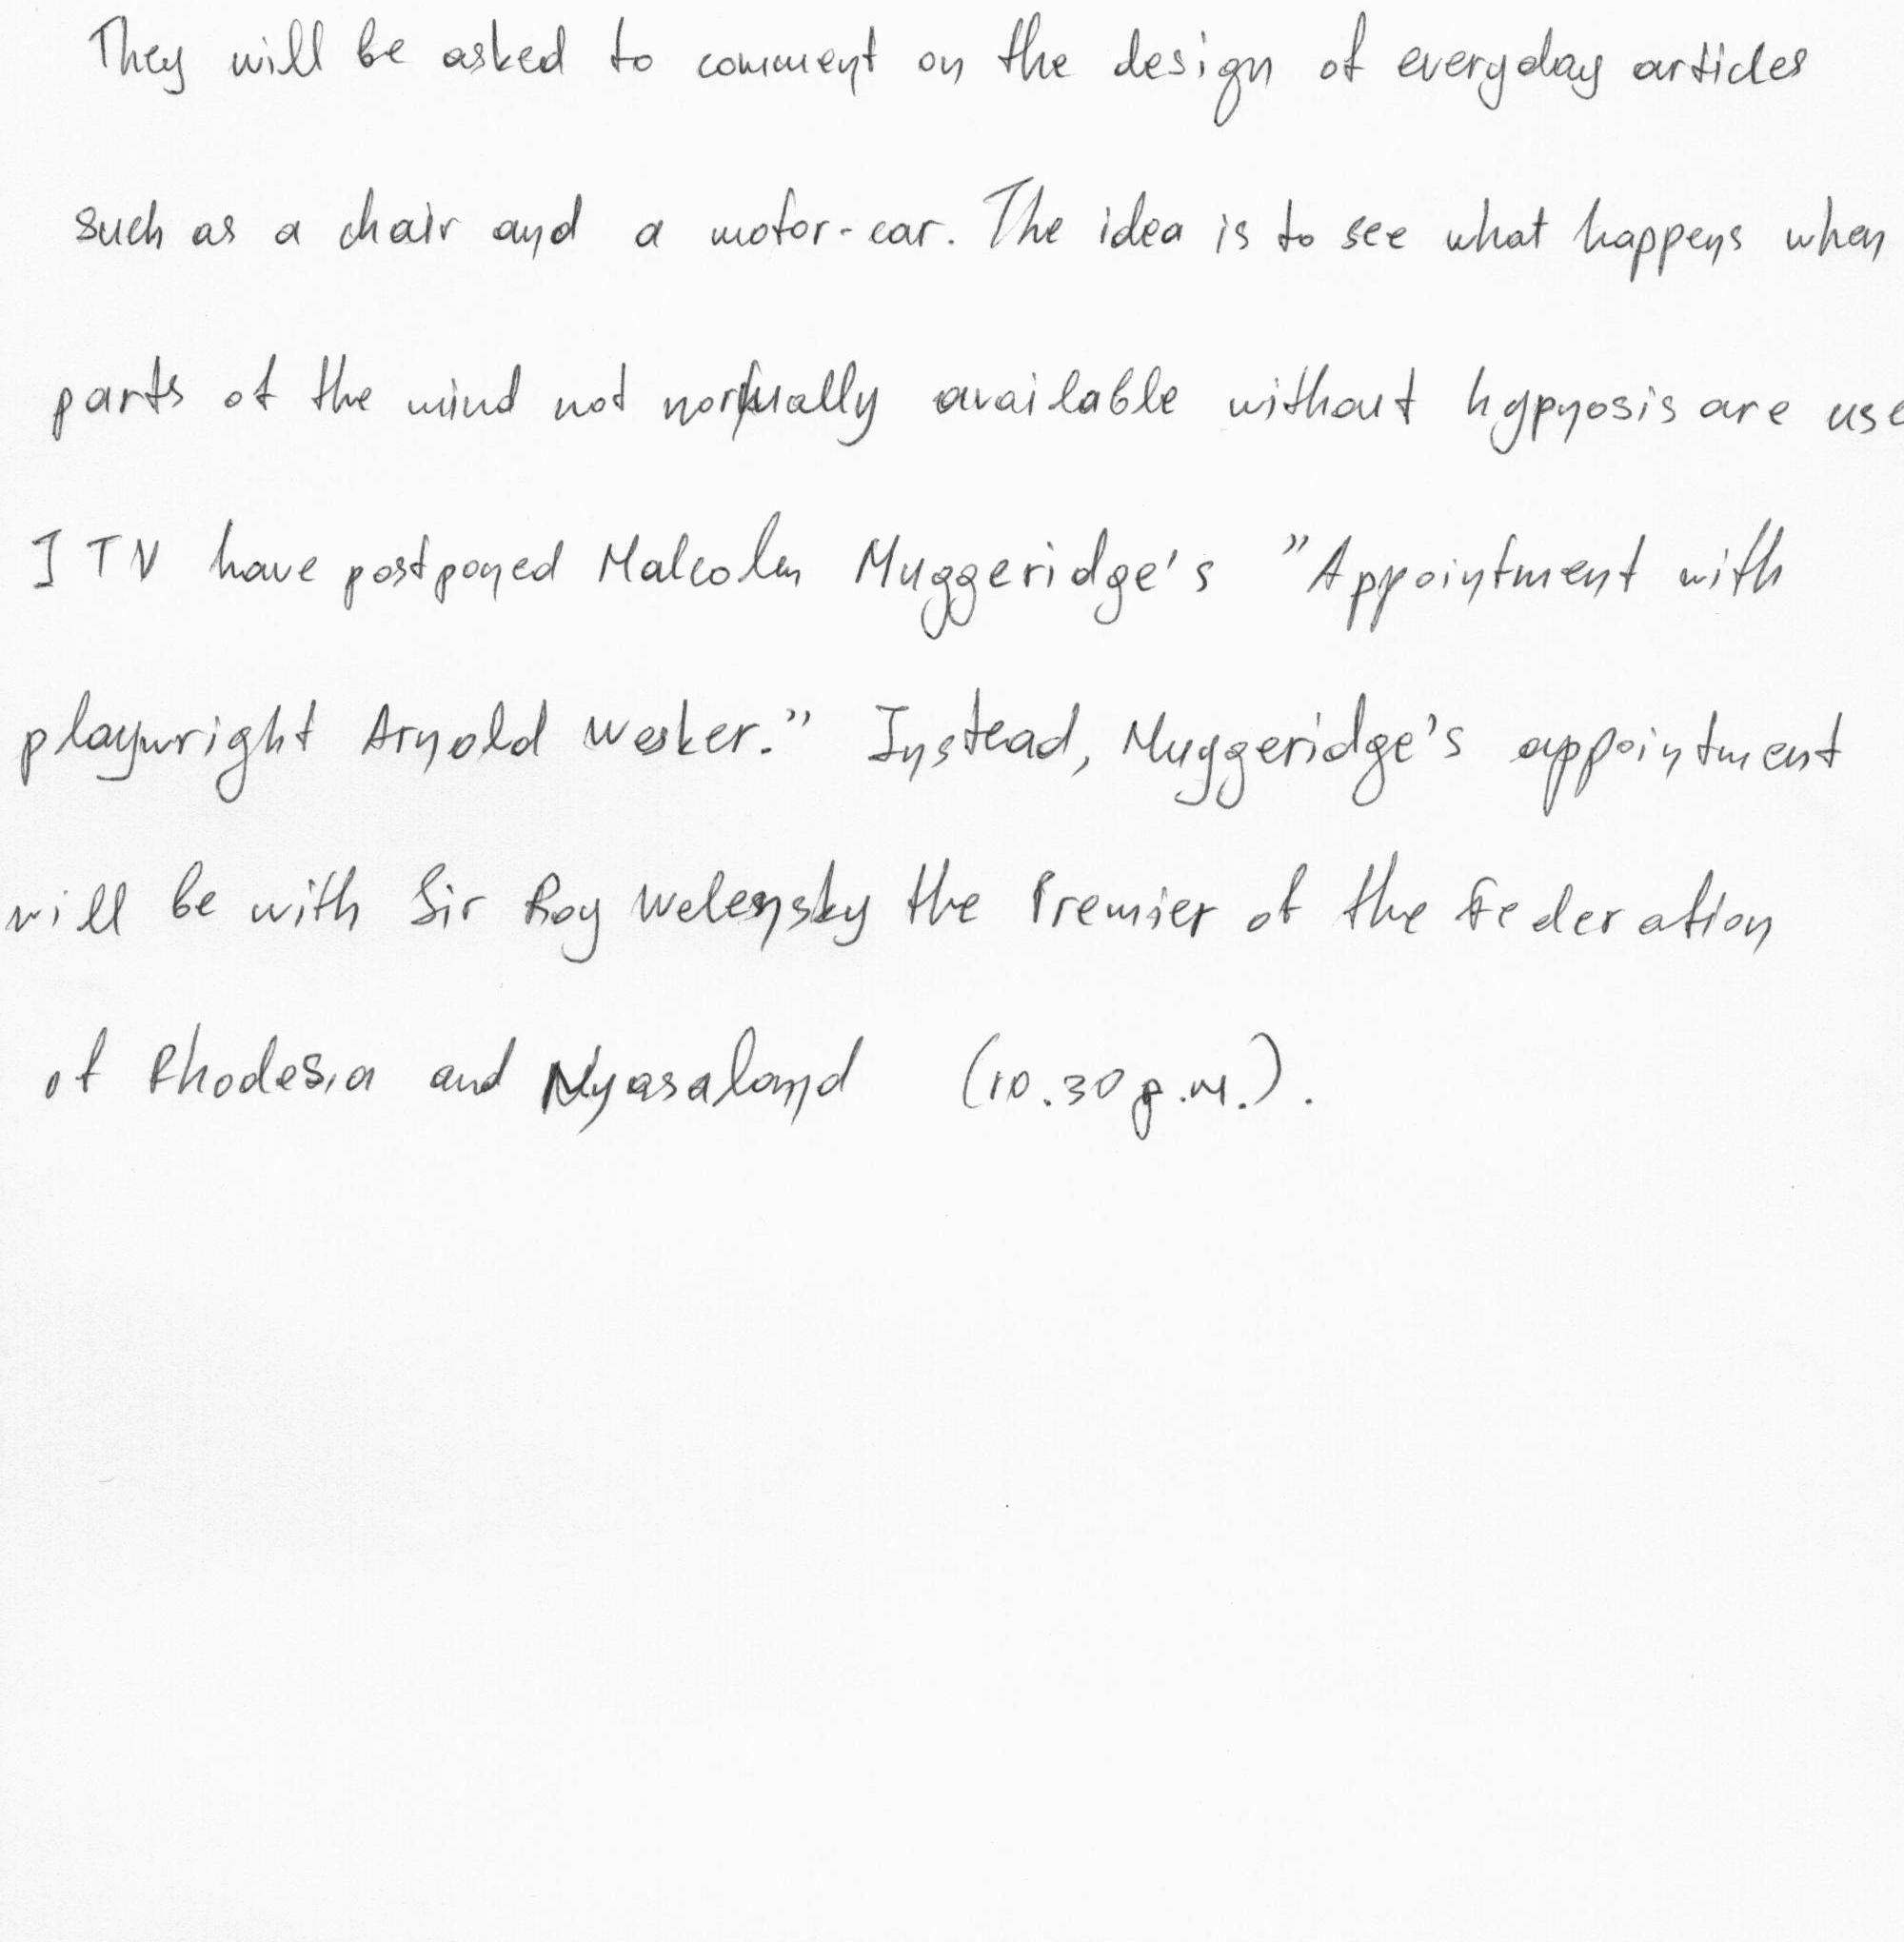 They will be asked to comment on the design of everyday articles
such as a chair and a motor-car. The idea is to see what happens when
parts of the mind not normally available without hypnosis are use
ITV have postponed Malcolm Muggeridge's "Appointment with
playwright Arnold Wesker." Instead, Muggeridge's appointment
will be with Sir Roy Welensky the Premier of the Federation
of Rhodesia and Nyasaland (10.30 p.m.).